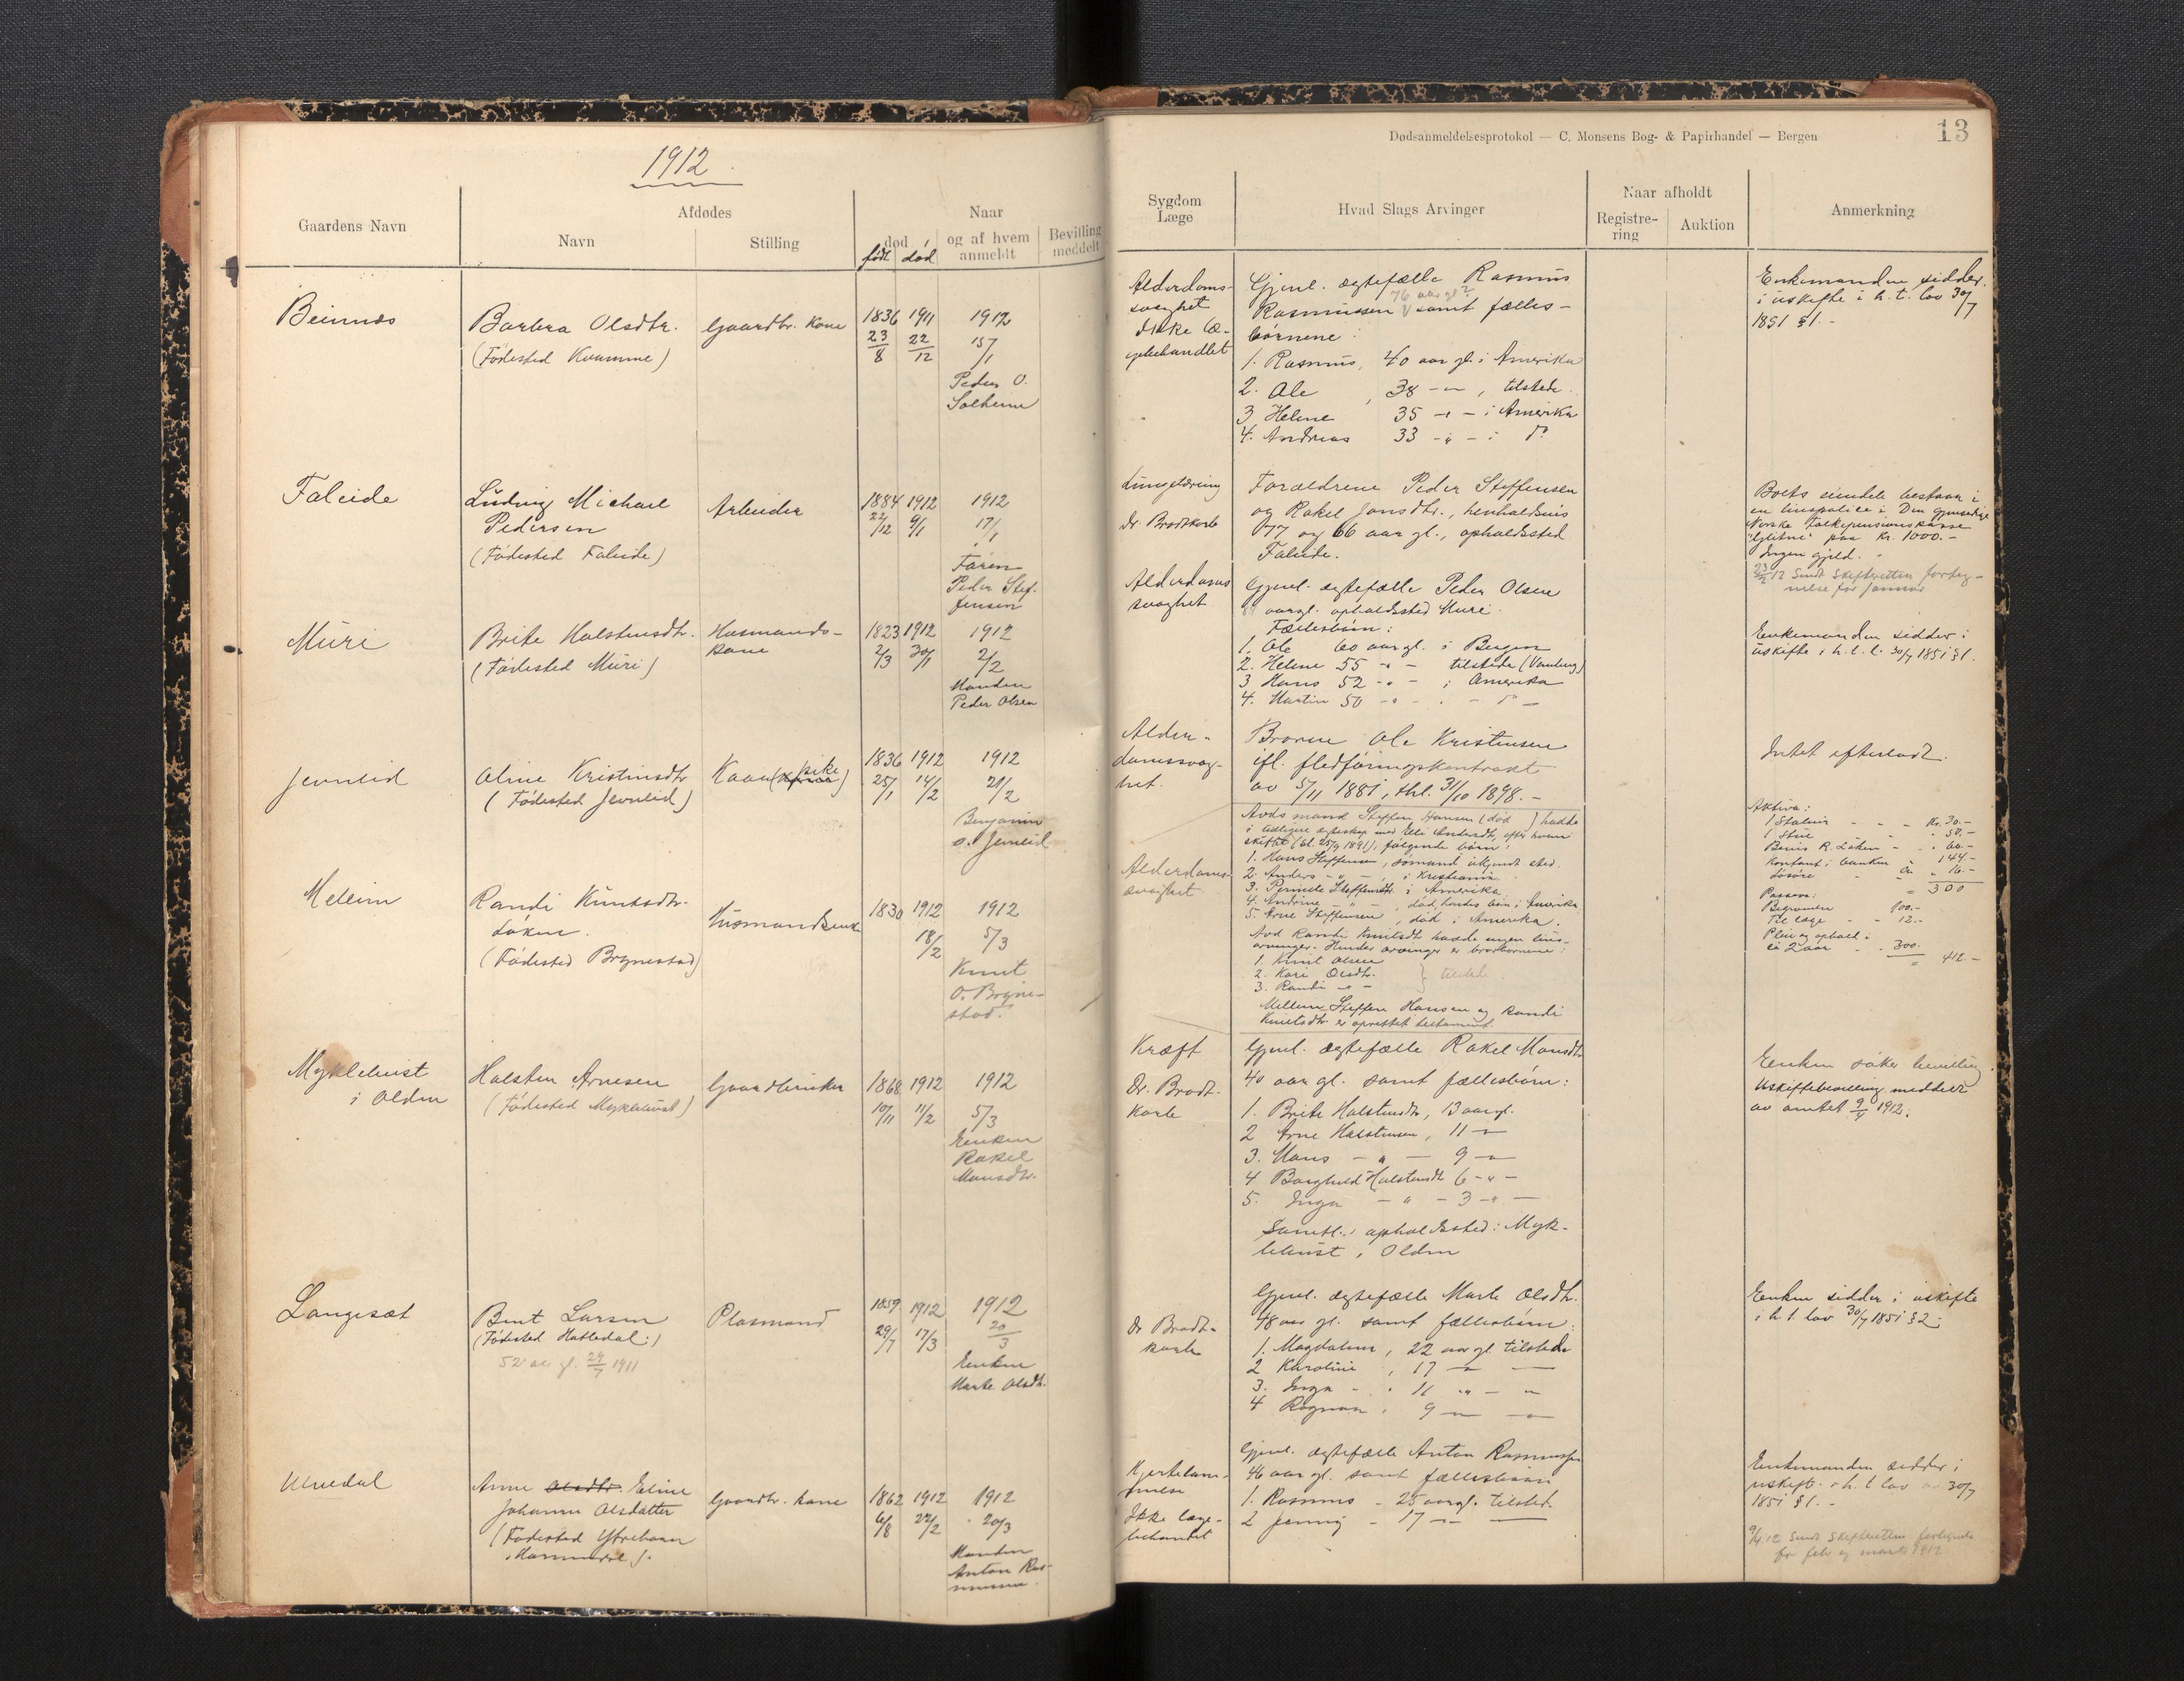 1912.
Gaardens Navn
Afdødes
Navn
Stilling
Naar
død
født
død
og af hvem anmeldt
Bevilling meddelt
Beinnes
Barbra Olsdtr.
(Fødested Kvamme)
Gaardbr. kone
1836 1911 1912
23/8 22/12 15/1
Peder O.
Solheim
Faleide
Ludvig Michael
Pedersen
(Fødested Faleide)
Arbeider
1884 1912 1912
22/12 9/1 17/1
Faren
Peder Stef-
fensen
Muri
Brite Halstensdtr.
(Fødested Muri)
Husmands-
kone
1823 1912 1912
2/3 30/1 2/2
Manden
Peder Olsen
Jevneid
Oline Kristensdtr
(Fødested Jevneid)
pike
1836 1912 1912
25/1 14/2 21/2
Benjamin
O. Jevneid
Meleim
Randi Knutsdtr.
Løken.
(Fødested Brynestad)
Husmandsenke
1830 1912 1912
18/2 5/3
Knut
O. Bryne-
stad.
Myklebust
i Olden
Halsten Arnesen
(Fødested Myklebust)
Gaardbruker
1868 1912 1912
10/11 11/2 5/3
Enken
Rakel
Mansdtr.
Langesæt
Bent Larsen
(Fødested Hatledal)
52 aar gl. 29/7 1911
Plasmand
1859 1912 1912
29/7 17/3 20/3
Enken
Marte Olsdtr.
Ulvedal
Anne Olsdtr. Eline
Johanne Olsdatter
(Fødested Ytrehorn
Gaardbr. kone
1862 1912 1912
6/8 22/2 20/3
Manden
Anton Ras-
mussen.
Dødsanmeldelsesprotokol — C. Monsens Bog- & Papirhandel — Bergen
13
Sygdom
Læge
Hvad Slags Arvinger
Naar afholdt
Registre-
ring
Auktion
Anmerkning
Alderdoms-
svaghet
Ikke læ-
gebehandlet
Gjenl. egtefælle Rasmus
76 aar gl?
Rasmussen V samt fælles-
børnene:
1. Rasmus, 40 aar gl. i Amerika
2. Ole , 38 -"- , tilstede.
3 Helene 35 -"- i Amerika
4. Andreas 33 -"- i do
Enkemanden sidder
i uskifte i h. t. lov 30/7
1851 § 1. -
Lungetæring
Dr. Brodtkorb
Forældrene Peder Steffensen
og Rakel Jonsdtr., henholdsvis
77 og 66 aar gl., opholdssted
Faleide.
Boets eiendele bestaar i
en livspolice i Den gjensidige
Norske Folkepensionskasse
"Glitne" paa kr. 1000.-
Ingen gjeld.
23/2 12 Sendt Skifteretten forteg-
nelse for januar
Alderdoms
svaghet
Gjenl. egtefælle Peder Olsen
aargl. opholdssted Muri.
Fællesbørn:
1. Ole 60 aar gl. i Bergen
2. Helene 55 -"- tilstede
3 Hans 52 -"- i Amerika
4. Martin 50 -"- do
Enkemanden sidder i
uskifte i h. t. l. 30/7 1851 § 1.
Alder-
domssvag-
het.
Broren Ole Kristensen
ifl. fledføringskontrakt
av 5/11 1881, thl. 31/10 1898.-
Intet efterladt.
Alderdoms-
svaghet.
Avds mand Steffen Hansen (død) hadde
i tidligere egteskap med Eli Andersdtr, efter hvem
skiftet (sl. 25/9 1891), følgende børn:
1. Hans Steffensen, sømand ukjendt sted.
2. Anders -"- , i Kristiania
3. Pernille Steffensdtr. i Amerika.
4. Andrine -"- , død, hendes børn i Amerika
5. Arne Steffensen, død i Amerika.
Avd Randi Knutsdtr hadde ingen livs-
arvinger. Hendes arvinger er brorbørnene:
1. Knut Olsen
2. Kari Olsdtr.
3. Randi -"-
} tilstede
Mellem Steffen Hansen og Randi
Knutsdtr. er oprettet testament.
Aktiva:
1 Stabur - - - Kr. 30.-
1 Stue - - " 50.-
60.-
Kontant i banken 144.-
Løsøre " 16.-
300
Passiva:
Begravelse 100.-
Til læge - - 12.-
Pleie og ophold i
2 aar - - 300.
" 412.-
Kræft
Dr. Brodt-
korb
Gjenl. egtefælle Rakel Mansdtr
40 aar gl. samt fællesbørn:
1. Brite Halstensdtr, 13 aar gl.
2 Arne Halstensen, 11 -"-
3. Mons -"- 9 -"-
4 Borghild Halstensdtr 6 -"-
5. Inga -"- 3 -"-
Samtl. opholdssted: Myk-
lebust, Olden
Enken søker bevilling.
Uskiftebevilling meddelt
av amtet 9/4 1912.
Dr Brodt-
korb
Gjenl. egtefælle Marte Olsdtr.
48 aar gl. samt fællesbørn:
1. Magdalene, 22 aar gl. tilstede
2 Karoline , 17 -"-
3. Inga - " 11 -"- "
4 Ragnar, 9 -"- -"-
Enken sidder i uskifte
i h. t. lov 30/7 1851 § 2.-
Hjertelam-
melse
Ikke læge-
behandlet
Gjenl. egtefælle Anton Rasmussen
46 aar gl. samt fællesbørn
1. Rasmus - 25 aar gl. tilsted.
2 Jenny - 17 -"- ——
Enkemanden sidder i
uskifte i h. t. lov av 30/7
1851 § 1. -
9/4 12 Sendt Skifteretten fortegnelse
for feb og mars 1912.